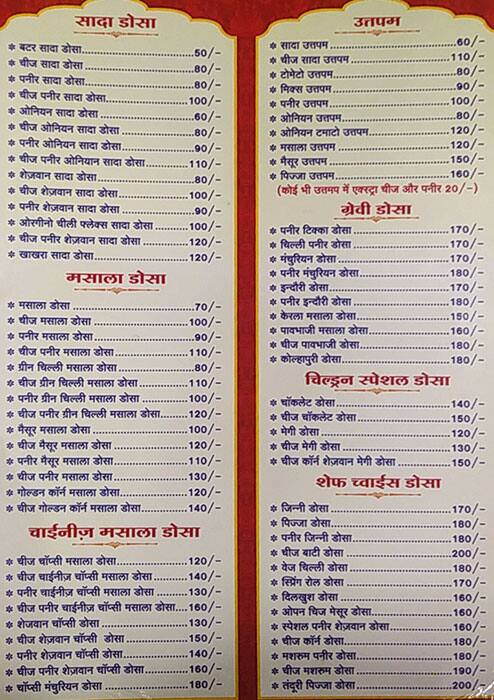 सादा डोसा
* बटर सादा डोसा.....................50/-
* चीज सादा डोसा.....................80/-
* पनीर सादा डोसा.....................80/-
* चीज पनीर सादा डोसा.....................100/-
* ओनियन सादा डोसा.....................60/-
* चीज ओनियन सादा डोसा.....................80/-
* पनीर ओनियन सादा डोसा.....................90/-
* चीज पनीर ओनियान सादा डोसा.....................110/-
* शेज़वान सादा डोसा.....................80/-
* चीज शेज़वान सादा डोसा.....................100/-
* पनीर शेज़वान सादा डोसा.....................90/-
* ओरगीनो चीली फ्लेक्स सादा डोसा.....................100/-
* चीज पनीर शेज़वान सादा डोसा.....................120/-
* खाखरा सादा डोसा.....................120/-
मसाला डोसा
* मसाला डोसा.....................70/-
* चीज मसाला डोसा.....................100/-
* पनीर मसाला डोसा.....................90/-
* चीज पनीर मसाला डोसा.....................110/-
* ग्रीन चिल्ली मसाला डोसा.....................80/-
* चीज ग्रीन चिल्ली मसाला डोसा.....................110/-
* पनीर ग्रीन चिल्ली मसाला डोसा.....................100/-
* चीज पनीर ग्रीन चिल्ली मसाला डोसा.....................120/-
* मैसूर मसाला डोसा.....................100/-
* चीज मैसूर मसाला डोसा.....................120/-
* पनीर मैसूर मसाला डोसा.....................110/-
* चीज पनीर मसाला डोसा.....................130/-
* गोल्डन कॉर्न मसाला डोसा.....................120/-
* चीज गोल्डन कॉर्न मसाला डोसा.....................140/-
चाईनीज़ मसाला डोसा
* चीज चॉप्सी मसाला डोसा.....................120/-
* चीज चाईनीज़ चॉप्सी मसाला डोसा.....................140/-
* पनीर चाईनीज़ चॉप्सी मसाला डोसा.....................130/-
* चीज पनीर चाईनीज़ चॉप्सी मसाला डोसा.....................160/-
* शेजवान चॉप्सी डोसा.....................130/-
* चीज शेज़वान चॉप्सी डोसा.....................150/-
* पनीर शेज़वान चॉप्सी डोसा.....................140/-
* चीज पनीर शेज़वान चॉप्सी डोसा.....................160/-
* चॉप्सी मंचुरियन डोसा.....................180/-
उत्तपम
* सादा उत्तपम.....................60/-
* चीज सादा उत्तपम.....................110/-
* टोमेटो उत्तपम.....................80/-
* मिक्स उत्तपम.....................90/-
* पनीर उत्तपम.....................100/-
* ओनियन उत्तपम.....................80/-
* ओनियन टमाटो उत्तपम.....................120/-
* मसाला उत्तपम.....................120/-
* मैसूर उत्तपम.....................150/-
* पिज्जा उत्तपम.....................160/-
(कोई भी उत्तमप में एक्स्ट्रा चीज और पनीर 20/-)
ग्रेवी डोसा
* पनीर टिक्का डोसा.....................170/-
* चिल्ली पनीर डोसा.....................170/-
* मंचुरियन डोसा.....................170/-
* पनीर मंचुरियन डोसा.....................180/-
* इन्दौरी डोसा.....................170/-
* पनीर इन्दौरी डोसा.....................180/-
* केरला मसाला डोसा.....................150/-
* पावभाजी मसाला डोसा.....................160/-
* चीज पावभाजी डोसा.....................180/-
* कोल्हापुरी डोसा.....................180/-
चिल्ड्रन स्पेशल डोसा
* चॉकलेट डोसा.....................140/-
* चीज चॉकलेट डोसा.....................150/-
* मेगी डोसा.....................120/-
* चीज मेगी डोसा.....................130/-
* चीज कॉर्न शेज़वान मेगी डोसा.....................150/-
शेफ च्वाईस डोसा
* जिन्नी डोसा.....................170/-
* पिज्जा डोसा.....................180/-
* पनीर जिन्नी डोसा.....................180/-
* चीज बाटी डोसा.....................200/-
* वेज चिल्ली डोसा.....................180/-
* स्प्रिंग रोल डोसा.....................170/-
* दिलखुश डोसा.....................160/-
* ओपन चिज मेसूर डोसा.....................160/-
* स्पेशल पनीर शेज़वान डोसा.....................160/-
* चीज कॉर्न डोसा.....................180/-
* मशरुम पनीर डोसा.....................180/-
* चीज मशरुम डोसा.....................190/-
* तंदूरी पिज्जा डोसा.....................200/-